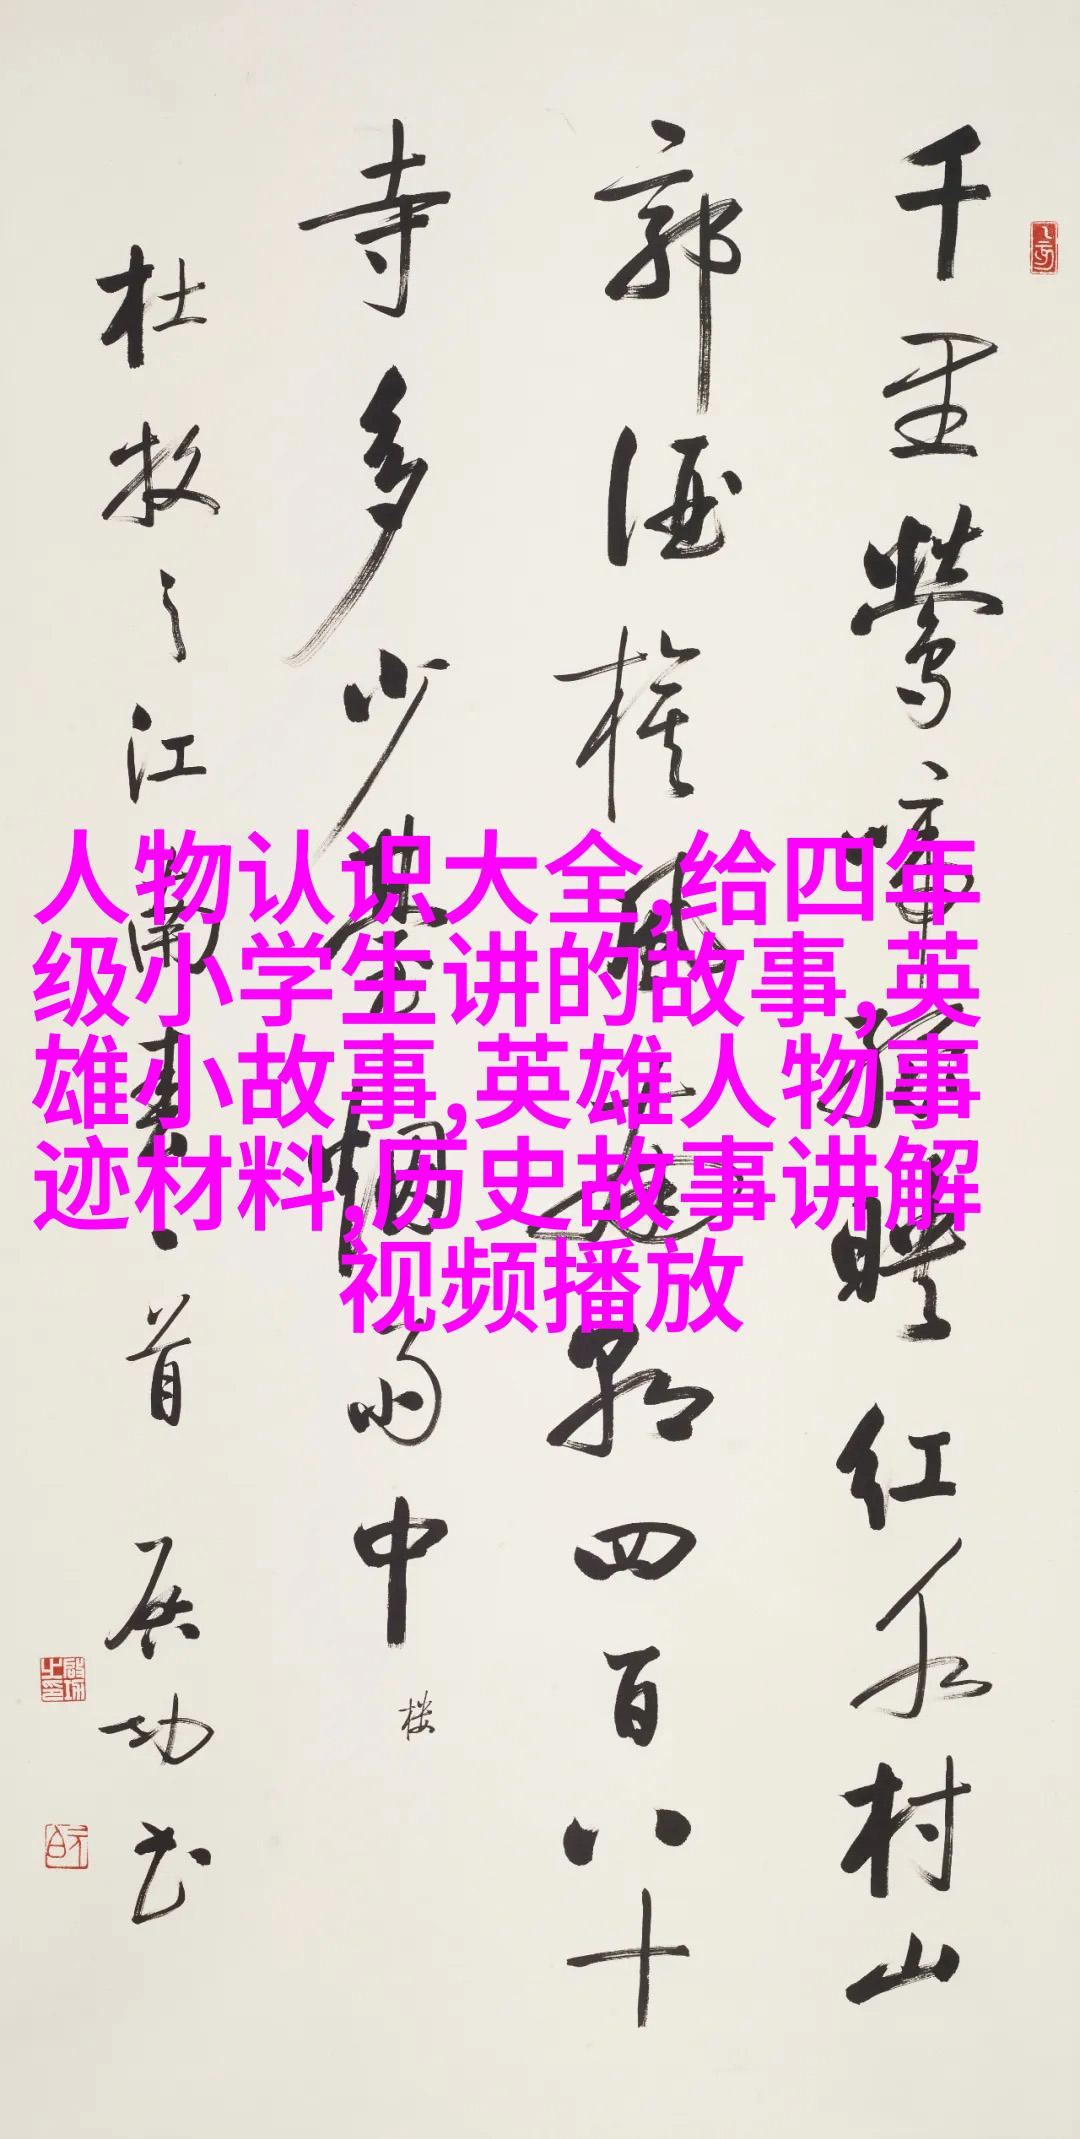 千里鶯啼綠暎紅水村山
郭酒旗風南朝四百八十
寺多少臺烟雨中
楼
杜牧之江南春一首 启功书
人物认识大全,给四年
级小学生讲的故事,英
雄小故事,英雄人物事
迹材料,历史故事讲解
视频播放